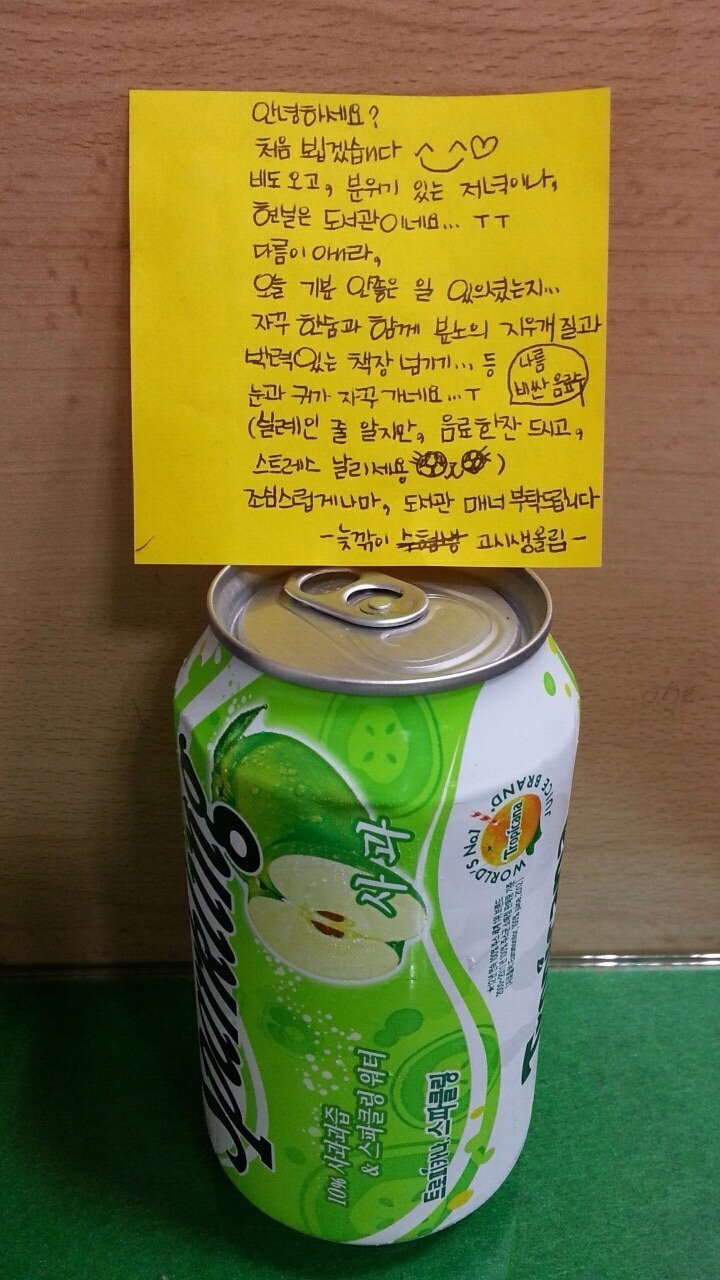 안녕하세요?
처음 뵙겠습니다 ^_^♡
비도 오고, 분위기 있는 저녁이나,
현실은 도서관이네요... ㅜㅜ
다름이 아니라,
오늘 기분 안좋은 일 있으셨는지...
자꾸 한숨과 함께 분노의 지우개질과
박력있는 책장 넘기기... 등
나름
비싼 음료수
눈과 귀가 자꾸 가네요...ㅜ
(실례인 줄 알지만, 음료한잔 드시고,
스트레스 날리세용)
조심스럽게나마, 도서관 매너 부탁드립니다
-늦깎이 고시생올림-
Sparkling
사과
JUICE BRAND.
WORLD'S No.1
Tropicana
10% 사과과즙
& 스파클링 워터
트로피카나 스파클링